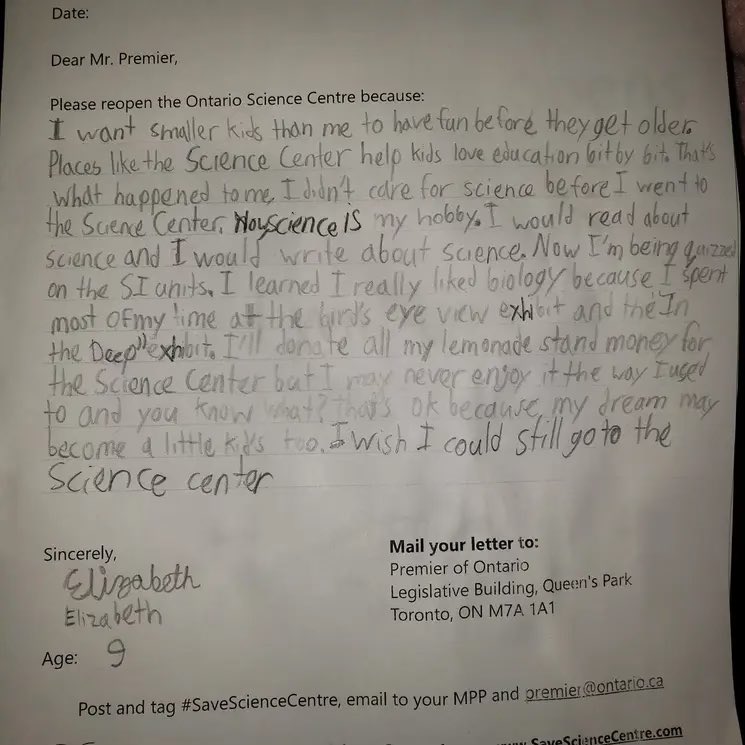 Date:
Dear Mr. Premier,
Please reopen the Ontario Science Centre because:
I want smaller kids than me to have fun before they get older.
Places like the Science Center help kids love education bit by bit. That's
what happened to me. I didn't care for science before I went to
the Science Center. Now science IS my hobby. I would read about
science and I would write about science. Now I'm being quizzed
on the SI units. I learned I really liked biology because I spent
most of my time at the bird's eye view exhibit and the "In
the Deep" exhibit. I'll donate all my lemonade stand money for
the Science Center but I may never enjoy it the way I used
to and you know what? That's ok because, my dream may
become a little kid's too. I wish I could still go to the
Science center
Sincerely,
Elizabeth
Elizabeth
Age: 9
Mail your letter to:
Premier of Ontario
Legislative Building, Queen's Park
Toronto, ON M7A 1A1
Post and tag #SaveScienceCentre, email to your MPP and premier@ontario.ca
www.SaveScienceCentre.com